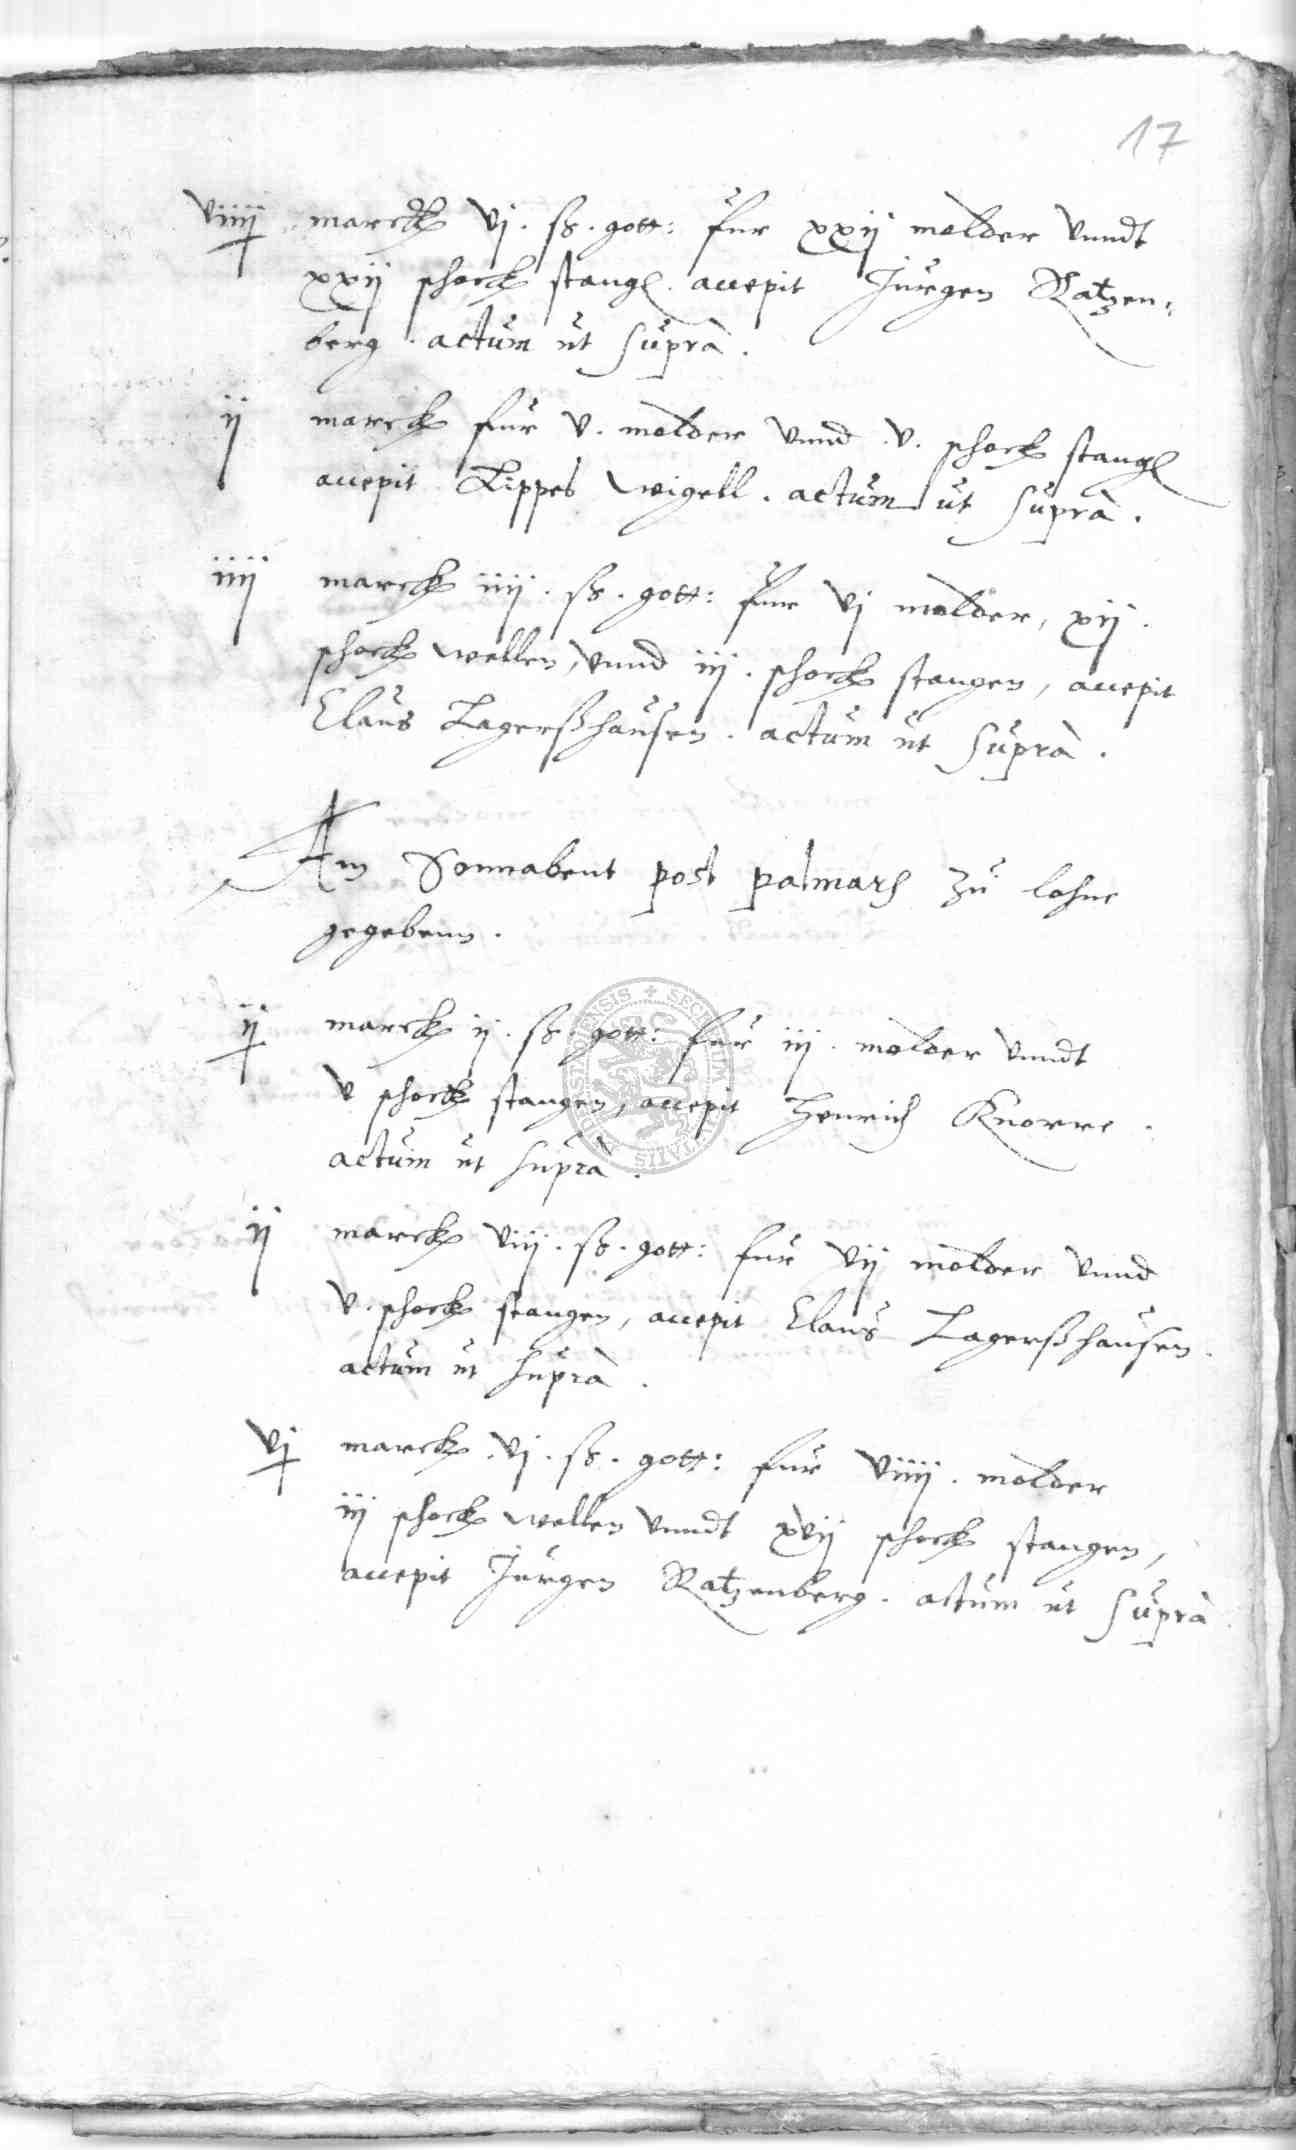 17
viiij marck vj. ß. gott: fur xxij molder vnndt
xxij schock stang. accepit Jurgen Ratzen-
berg. actum ut supra.
ij marck fur v. molder vnnd .v. schock stang
accepit Lippes Wigell. actum ut supra.
iiij marck iiij. ß. gott: fur vj molder, xij.
schock wellen, vnnd iij. schock stangen, accepit
Claus Lagerßhausen. actum ut supra.
Am Sonnabent post palmar zu lohne
gegebenn.
ij marck ij. ß. gott: fur iij. molder vnndt
v schock stangen, accepit Henrich Knorre.
actum ut supra.
ij marck viij. ß. gott: fur vij molder vnnd
v. schock stangen, accepit Claus Lagerßhausen.
actum ut supra.
vj marck .vj. ß. gott: fur viiij. molder
iij schock wellen vnndt xvij schock stangen,
accepit Jurgen Ratzenberg. actum ut supra